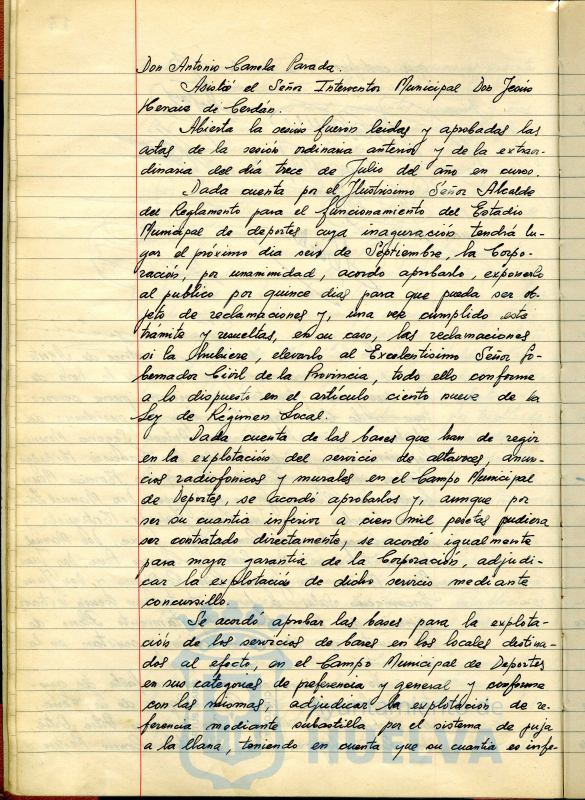 Don Antonio Canela Parada.
Asistió el Señor Interventor Municipal Don Jesús
Hernaiz de Cerdán.
Abierta la sesión fueron leidas y aprobadas las
actas de la sesión ordinaria anterior y de la extraor-
dinaria del día trece de Julio del año en curso.
Dada cuenta por el Ilustrisimo Señor Alcalde
del Reglamento para el funcionamiento del Estadio
Municipal de deportes cuya inaguración tendrá lu-
gar el próximo dia seis de Septiembre, la Corpo-
ración, por unanimidad, acordo aprobarlo, exponerlo
al publico por quince dias para que pueda ser ob-
jeto de reclamaciones y, una vez cumplido este
trámite y resueltas, en su caso, las reclamaciones
si la hubiere, elevarlo al Excelentisimo Señor Go-
bernador Civil de la Provincia, todo ello conforme
a lo dispuesto en el artículo ciento nueve de la
Ley de Régimen Local.
Dada cuenta de las bases que han de regir
en la explotación del servicio de altavoces, anun-
cios radiofonicos y murales en el Campo Municipal
de Deportes, se acordó aprobarlos y, aunque por
ser su cuantia inferior a cien mil pesetas pudiera
ser contratado directamente, se acordó igualmente
para mayor garantia de la Corporación, adjudi-
car la explotación de dicho servicio mediante
concursillo.
Se acordó aprobar las bases para la explota-
ción de los servicios de bares en los locales destina-
dos al efecto, en el Campo Municipal de Deportes
en sus categorias de preferencia y general y conforme
con las mismas, adjudicar la explotación de re-
ferencia mediante subastilla por el sistema de puja
a la llana, teniendo en cuenta que su cuantia es infe-
HUELVA